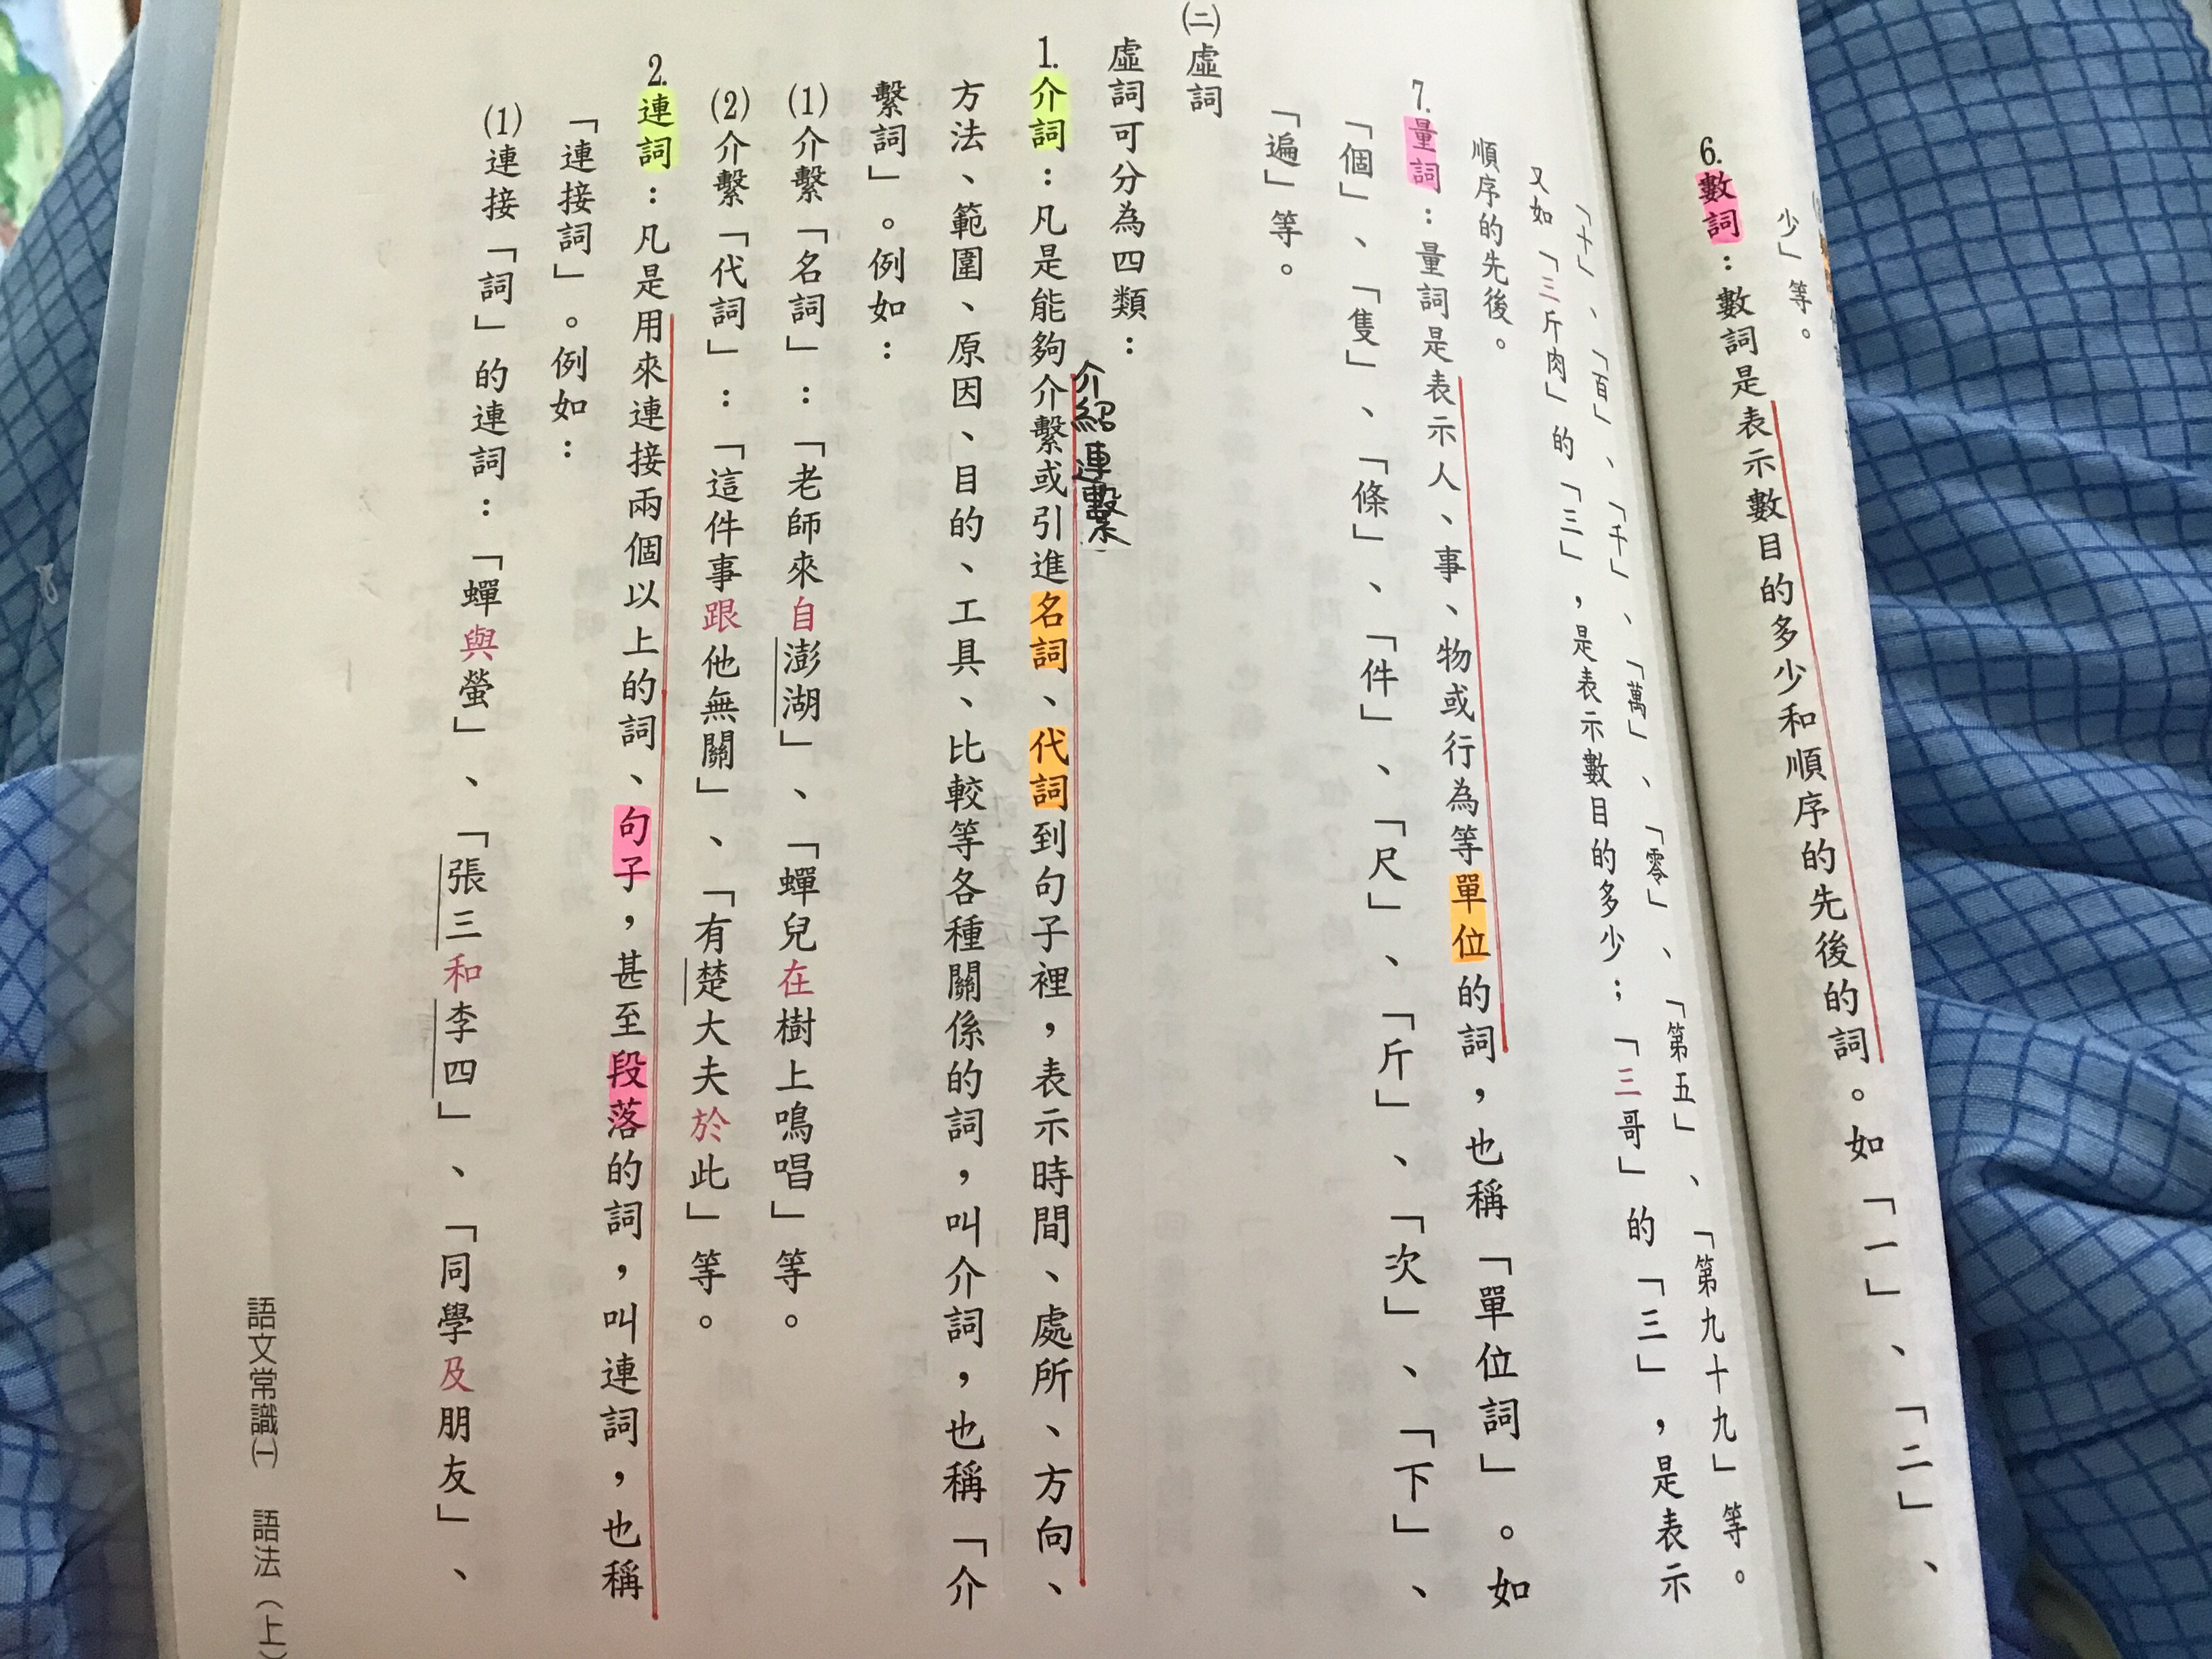 少」等。
6.數詞：數詞是表示數目的多少和順序的先後的詞。如「一」、「二」、
「十」、「百」、「千」、「萬」、「零」、「第五」、「第九十九」等。
又如「三斤肉」的「三」，是表示數目的多少；「三哥」的「三」，是表示
順序的先後。
7.量詞：量詞是表示人、事、物或行為等單位的詞，也稱「單位詞」。如
「個」、「隻」、「條」、「件」、「尺」、「斤」、「次」、「下」、
「遍」等。
㈡虛詞
虛詞可分為四類：
介紹連繫
1.介詞：凡是能夠介繫或引進名詞、代詞到句子裡，表示時間、處所、方向、
方法、範圍、原因、目的、工具、比較等各種關係的詞，叫介詞，也稱「介
繫詞」。例如：
(1)介繫「名詞」：「老師來自澎湖」、「蟬兒在樹上鳴唱」等。
(2)介繫「代詞」：「這件事跟他無關」、「有楚大夫於此」等。
2.連詞：凡是用來連接兩個以上的詞、句子，甚至段落的詞，叫連詞，也稱
「連接詞」。例如：
(1)連接「詞」的連詞：「蟬與螢」、「張三和李四」、「同學及朋友」、
語文常識㈠　語法（上）